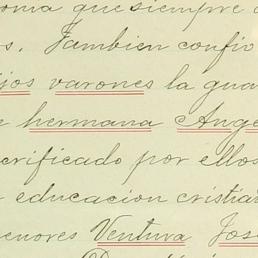 oma que siempre
s. Tambien confio
jos varones la gua
e hermana Ange
crificado por ellos
educacion cristia
enores Ventura Jos